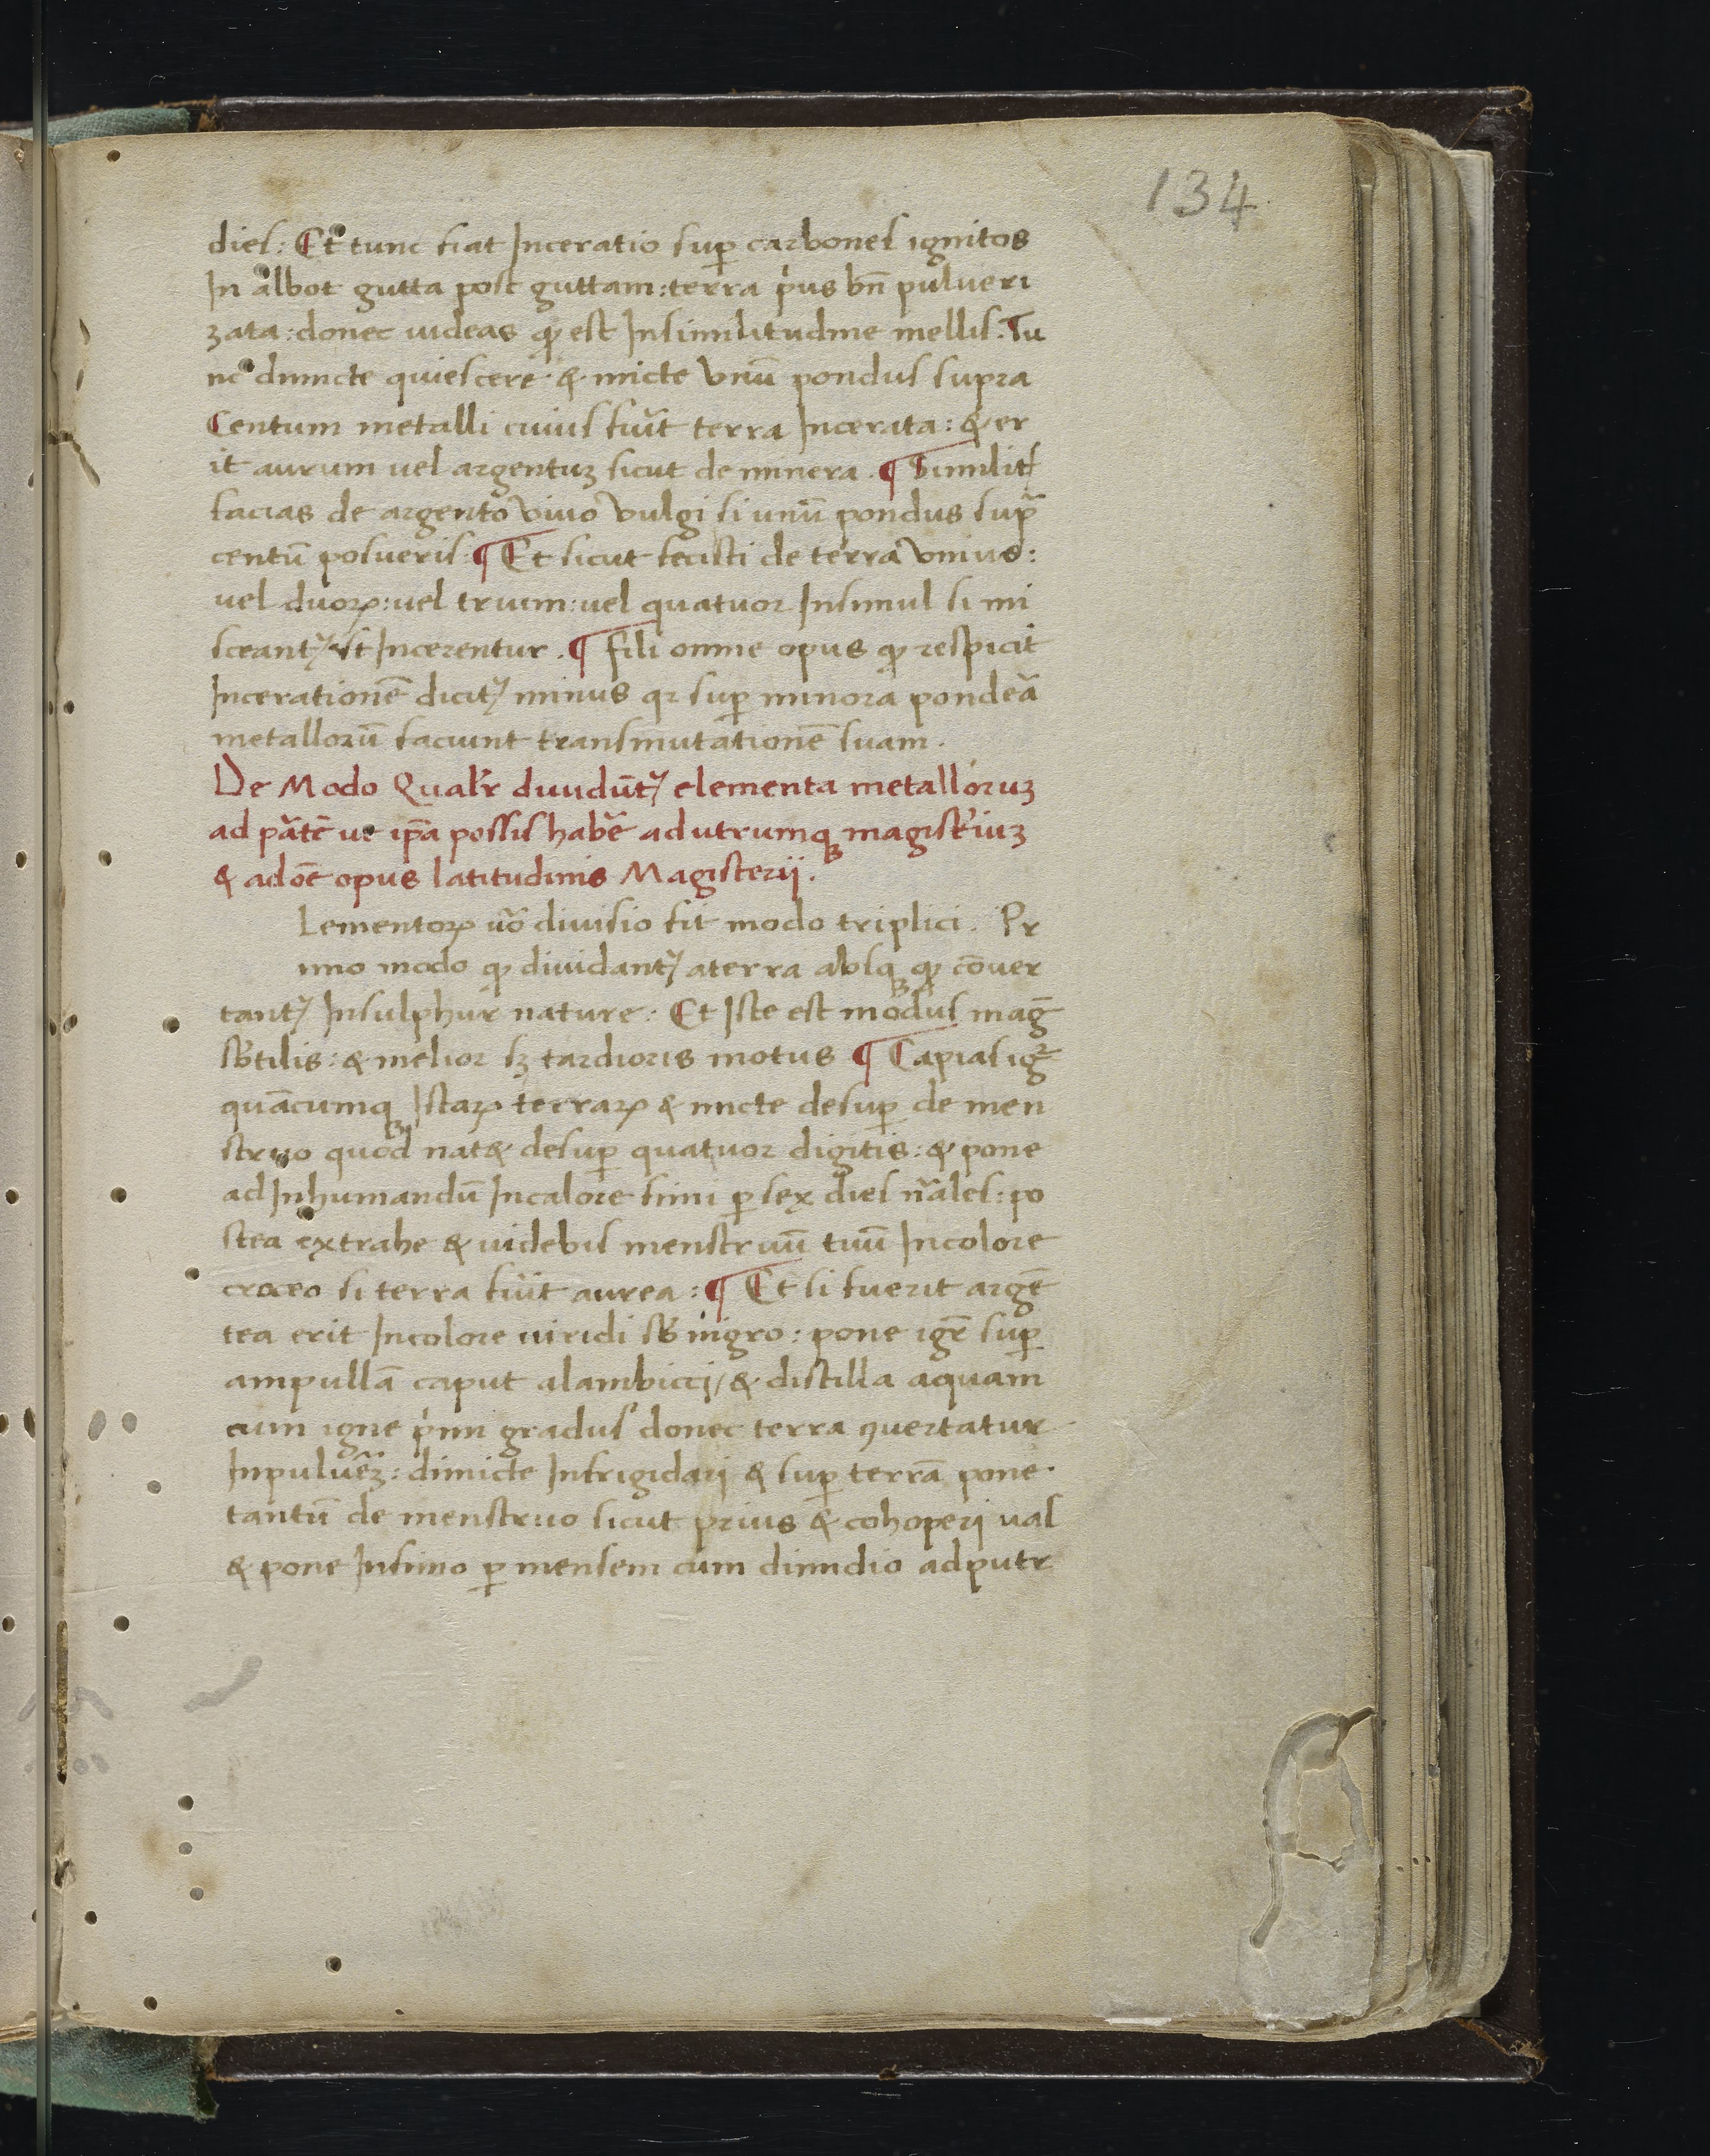 134
dies: Et tunc fiat Inceratio suꝑ carbones ignitos
In albot gutta post guttam: terra p̍us bn̄ pulueri
zata: donec uideas ꝙ est Insimilitudine mellis. Tu
nc dimicte quiescere & micte vnuʒ̄ pondus supra
Centum metalli cuius fuit̄ terra Incerata: & er
it aurum uel argentuʒ sicut de minera. ¶ Similit̄
facias de argento viuo vulgi si unū pondus sup̄
centū posueris. ¶ Et sicut fecisti de terra vnius:
uel duoꝝ: uel trium: uel quatuor Insimul si mi
sceant᷒ ut Incerentur. ¶ fili omne opus ꝙ respicit
Incerationē dicit᷒ minus qꝛ suꝑ minora pondeā
metalloruʒ̄ faciunt transmutationē suam.
De Modo Qualr̍ diuidūt᷒ elementa metalloruʒ
ad pāte ut ip̄a possis habē ad utrumqʒ magist̍iuʒ
& ad oē opus latitudinis Magisterij.
Lementoꝝ uō diuisio fit modo triplici. Pr
imo modo ꝙ diuidant᷒ aterra absqʒ ꝙ cōuer
tant᷒ Insulphur nature: Et Iste est modus mag̅
sb̍tilis: & melior sʒ tardioris motus ¶ Capias ig̅ꝛ
quācumqʒ Istaꝝ terraꝝ & micte desuꝑ de men
struo quod nat& desuꝑ quatuor digitis: & pone
ad Inhumandū Incalore fimi ꝑ sex dies n̄ales: po
stea extrahe & uidebis menstruū tuū Incolore
croceo si terra fuīt aurea: ¶ Et si fuerit argē
tea erit Incolore uiridi sb̍ nigro: pone igr̄ suꝑ
ampullā caput alambicci / & distilla aquam
cum igne p̍mi gradus donec terra ꝯuertatur
Inpuluēʒ: dimicte Infrigidarj & suꝑ terrā pone
tantū de menstruo sicut prius & cohoperj uas
& pone Infimo ꝑ mensem cum dimidio adputr